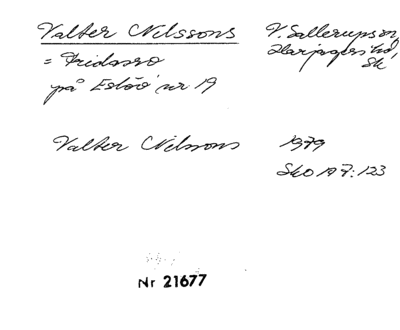 Valter Nilssons
V. Sallerups sn,
Harjagers hd,
Sk
= Fridasro
på Eslöv nr 19
Valter Nilssons 1979
Sko 19 7:123
Nr 21677